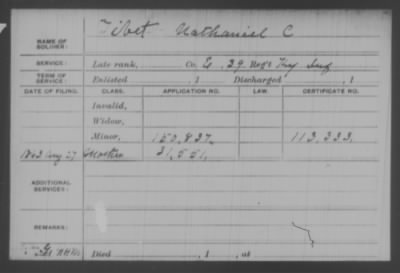 NAME OF SOLDIER: Tibet Nathaniel C
SERVICE: Late rank, Co. E, 39 Reg't Ky Inf
TERM OF SERVICE: Enlisted , 1 Discharged , 1
DATE OF FILING. CLASS. APPLICATION NO. LAW. CERTIFICATE NO.
Invalid,
Widow,
Minor, 150,837. 113,333.
Aug 27 Mother 31,551.
ADDITIONAL SERVICES:
REMARKS:
Died , 1 , at